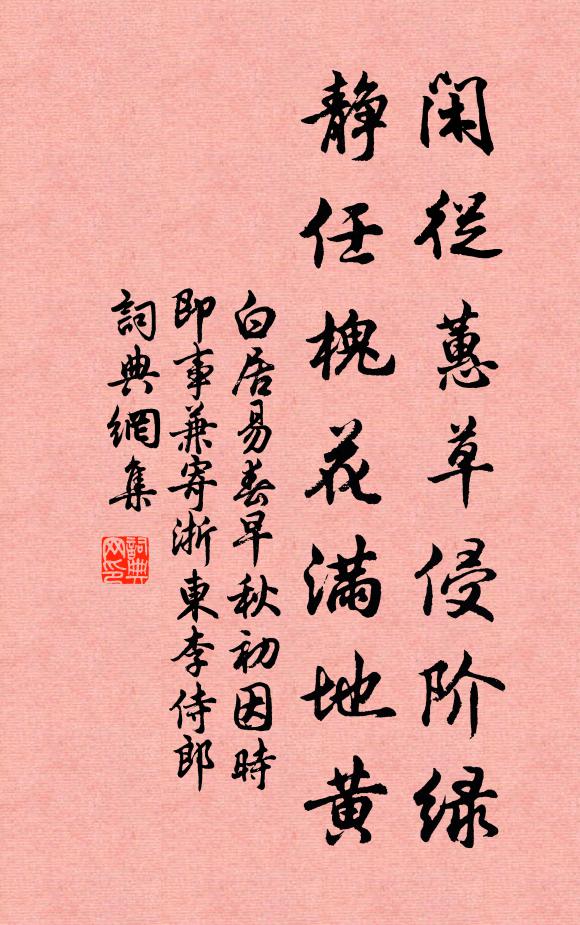 闲從蕙草侵阶绿
静任槐花满地黄
白居易春早秋初因時
即事兼寄浙東李侍郎
詞典網集
詞典網印